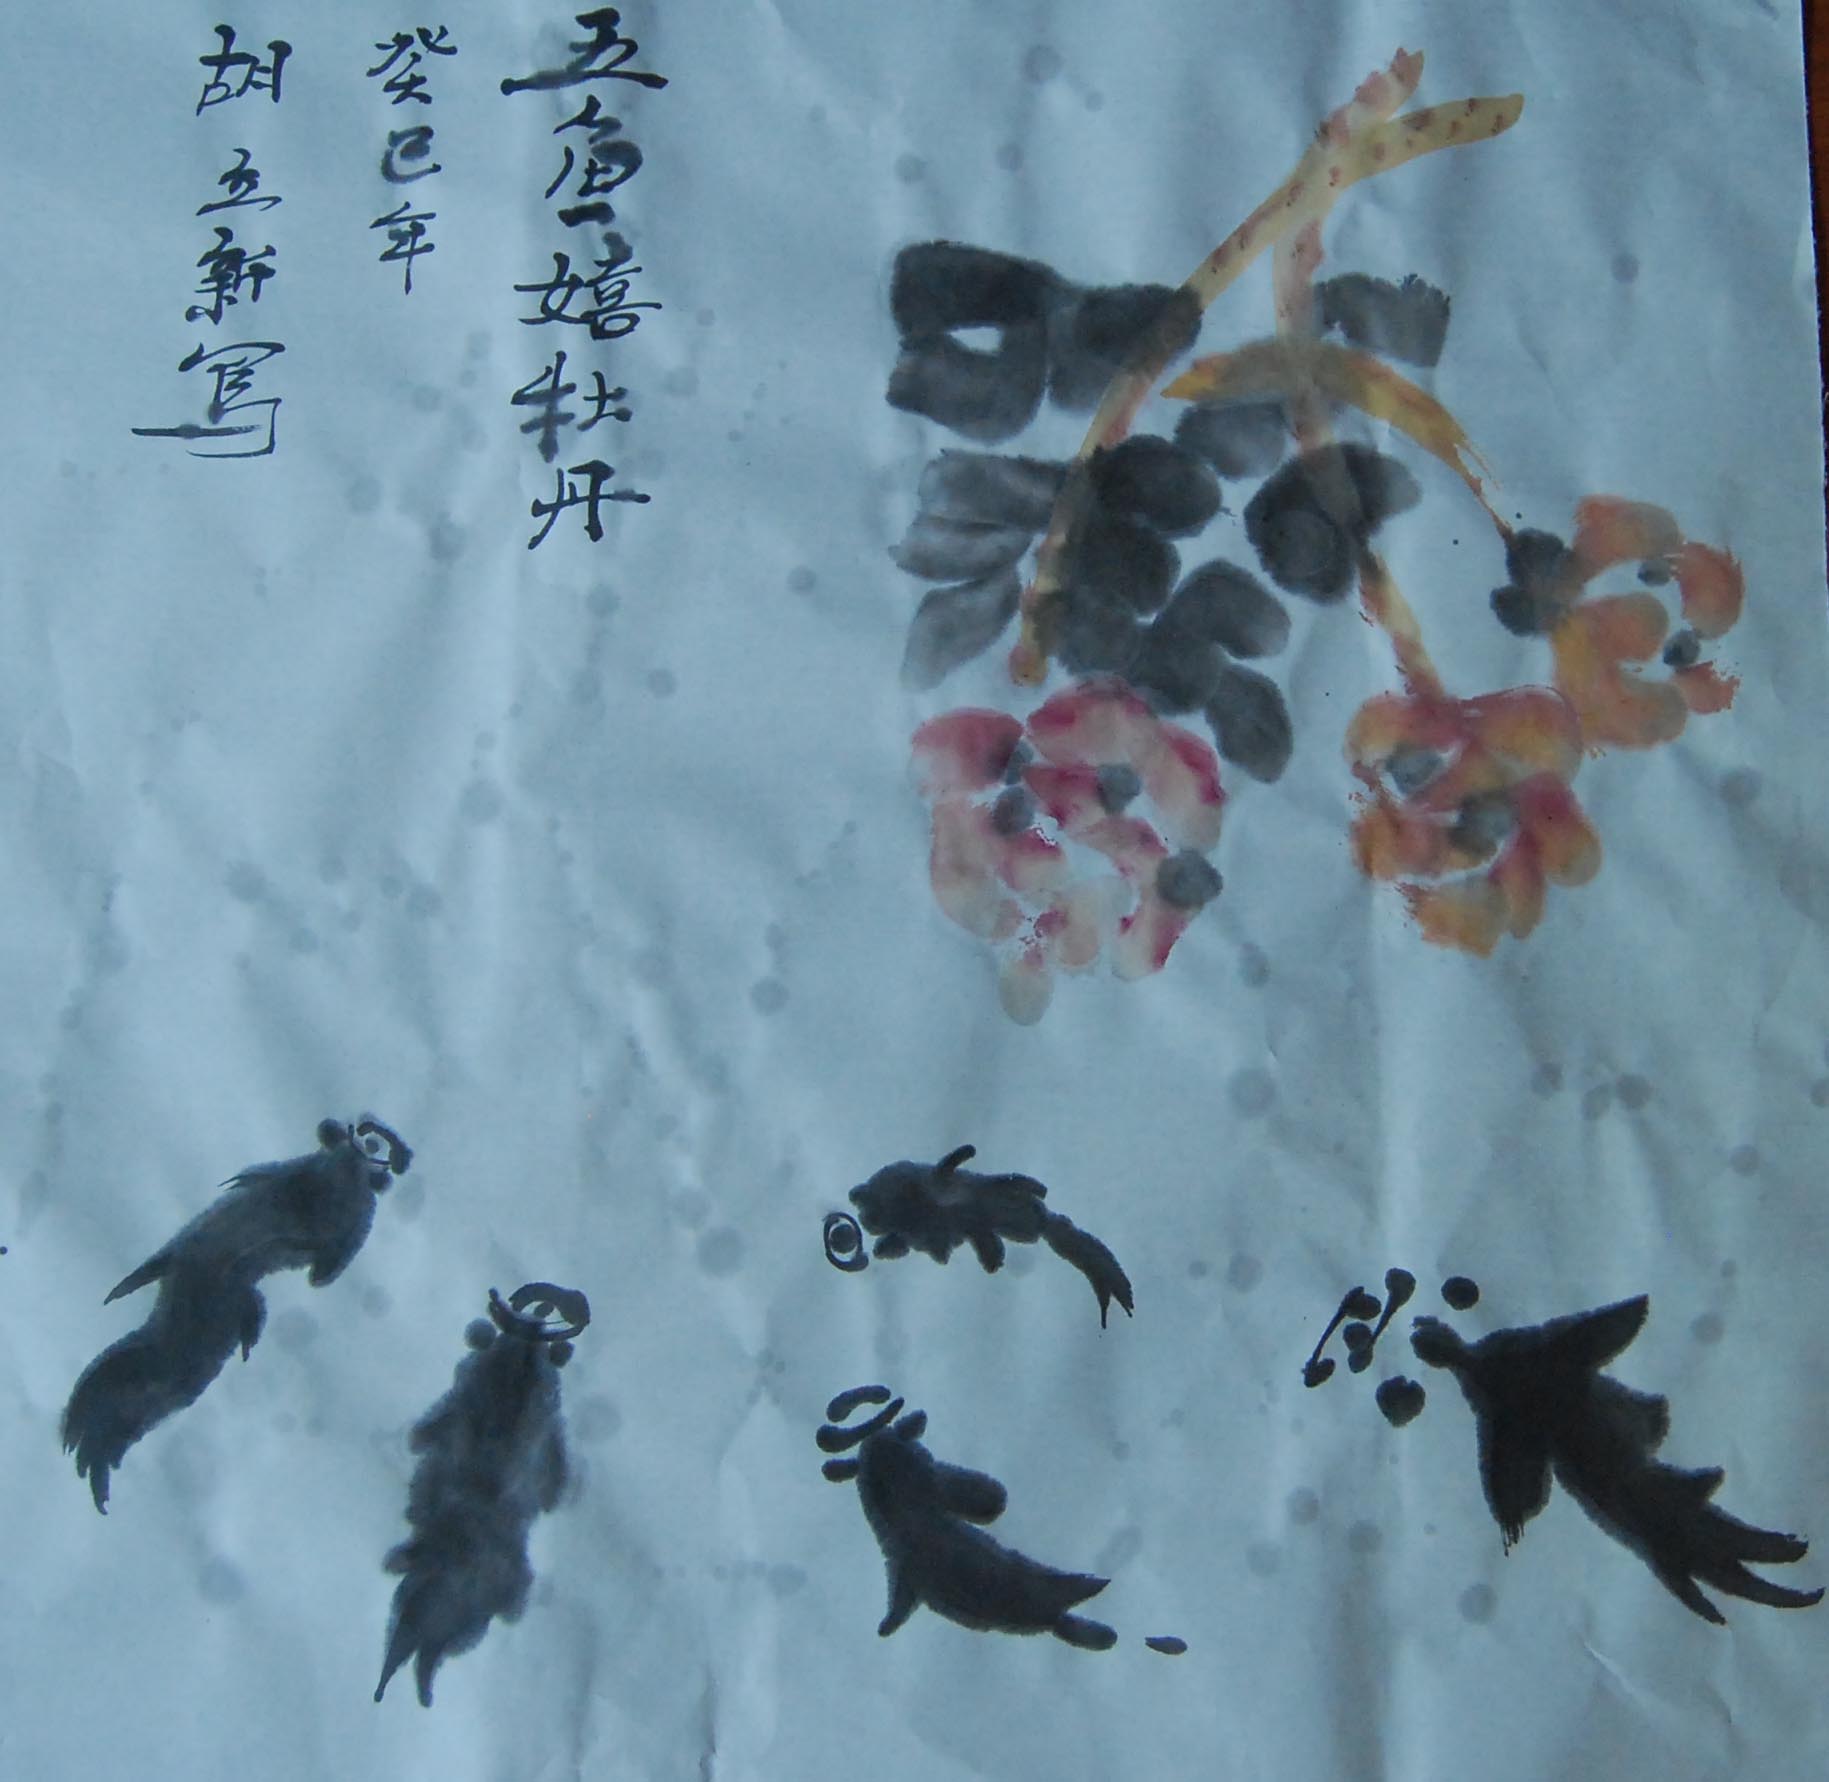 五鱼嬉牡丹
癸巳年
胡立新写